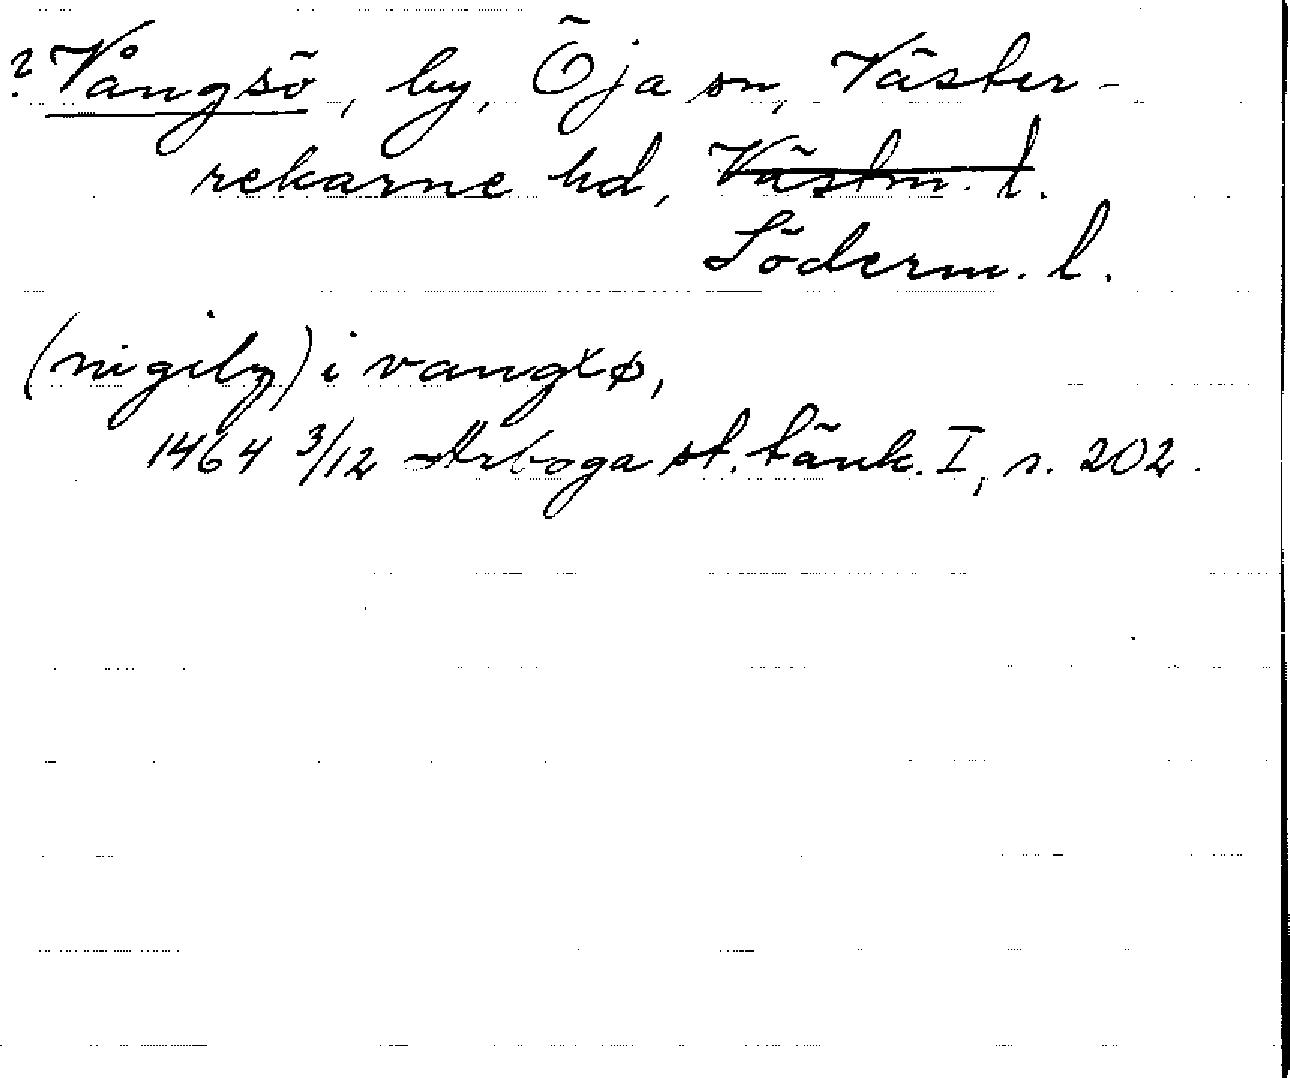 ? Vångsö, by, Öja sn, Väster-
rekarne hd, Västm. l.
Söderm. l.
(nigils) i vangxø,
1464 3/12 Arboga st. tänk. I, s. 202.